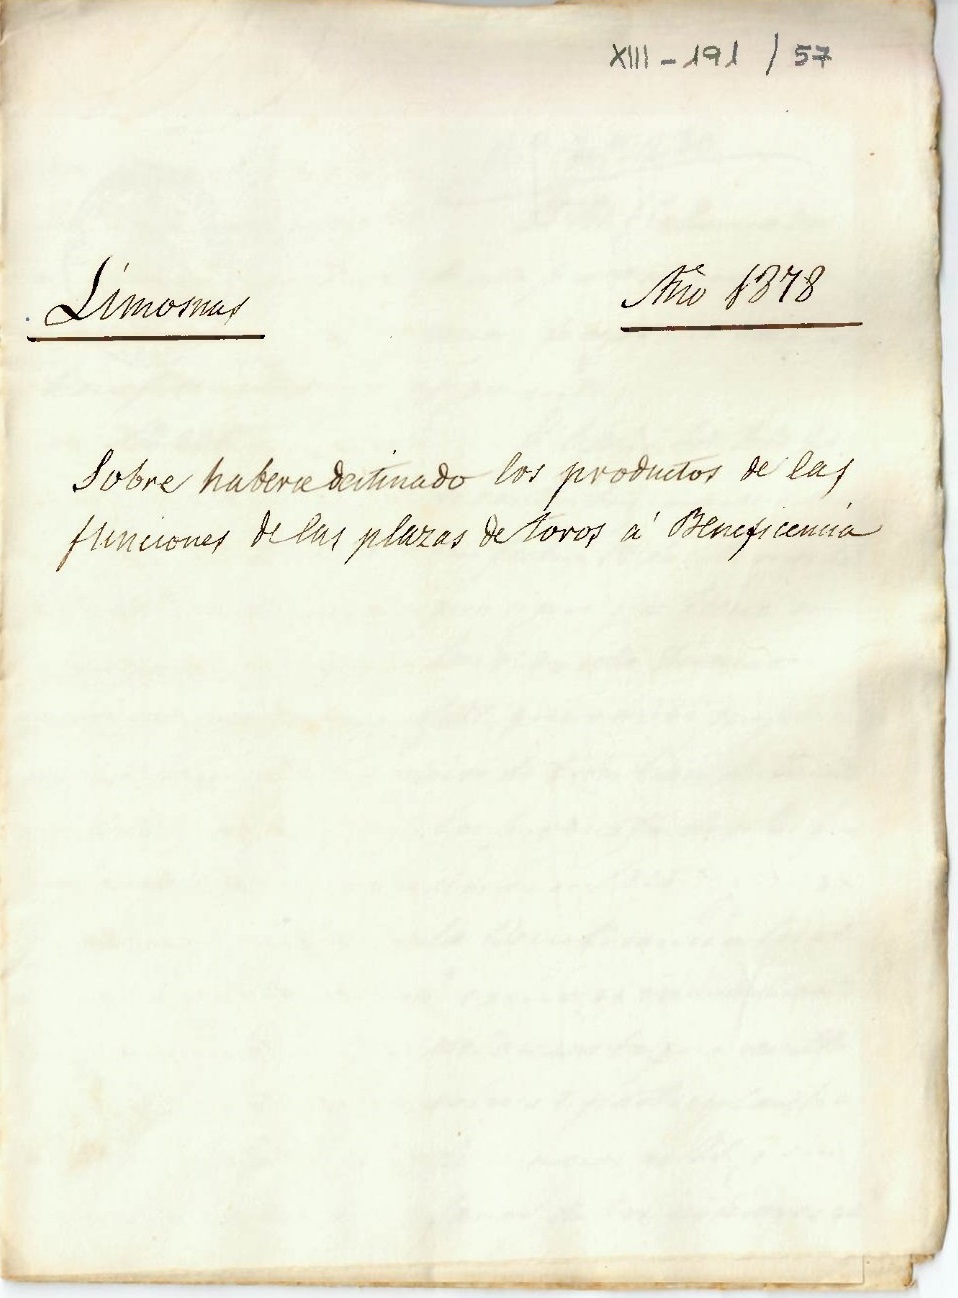 XIII-191/57
Limosnas
Año 1878
Sobre haberse destinado los productos de las
funciones de las plazas de toros á Beneficencia